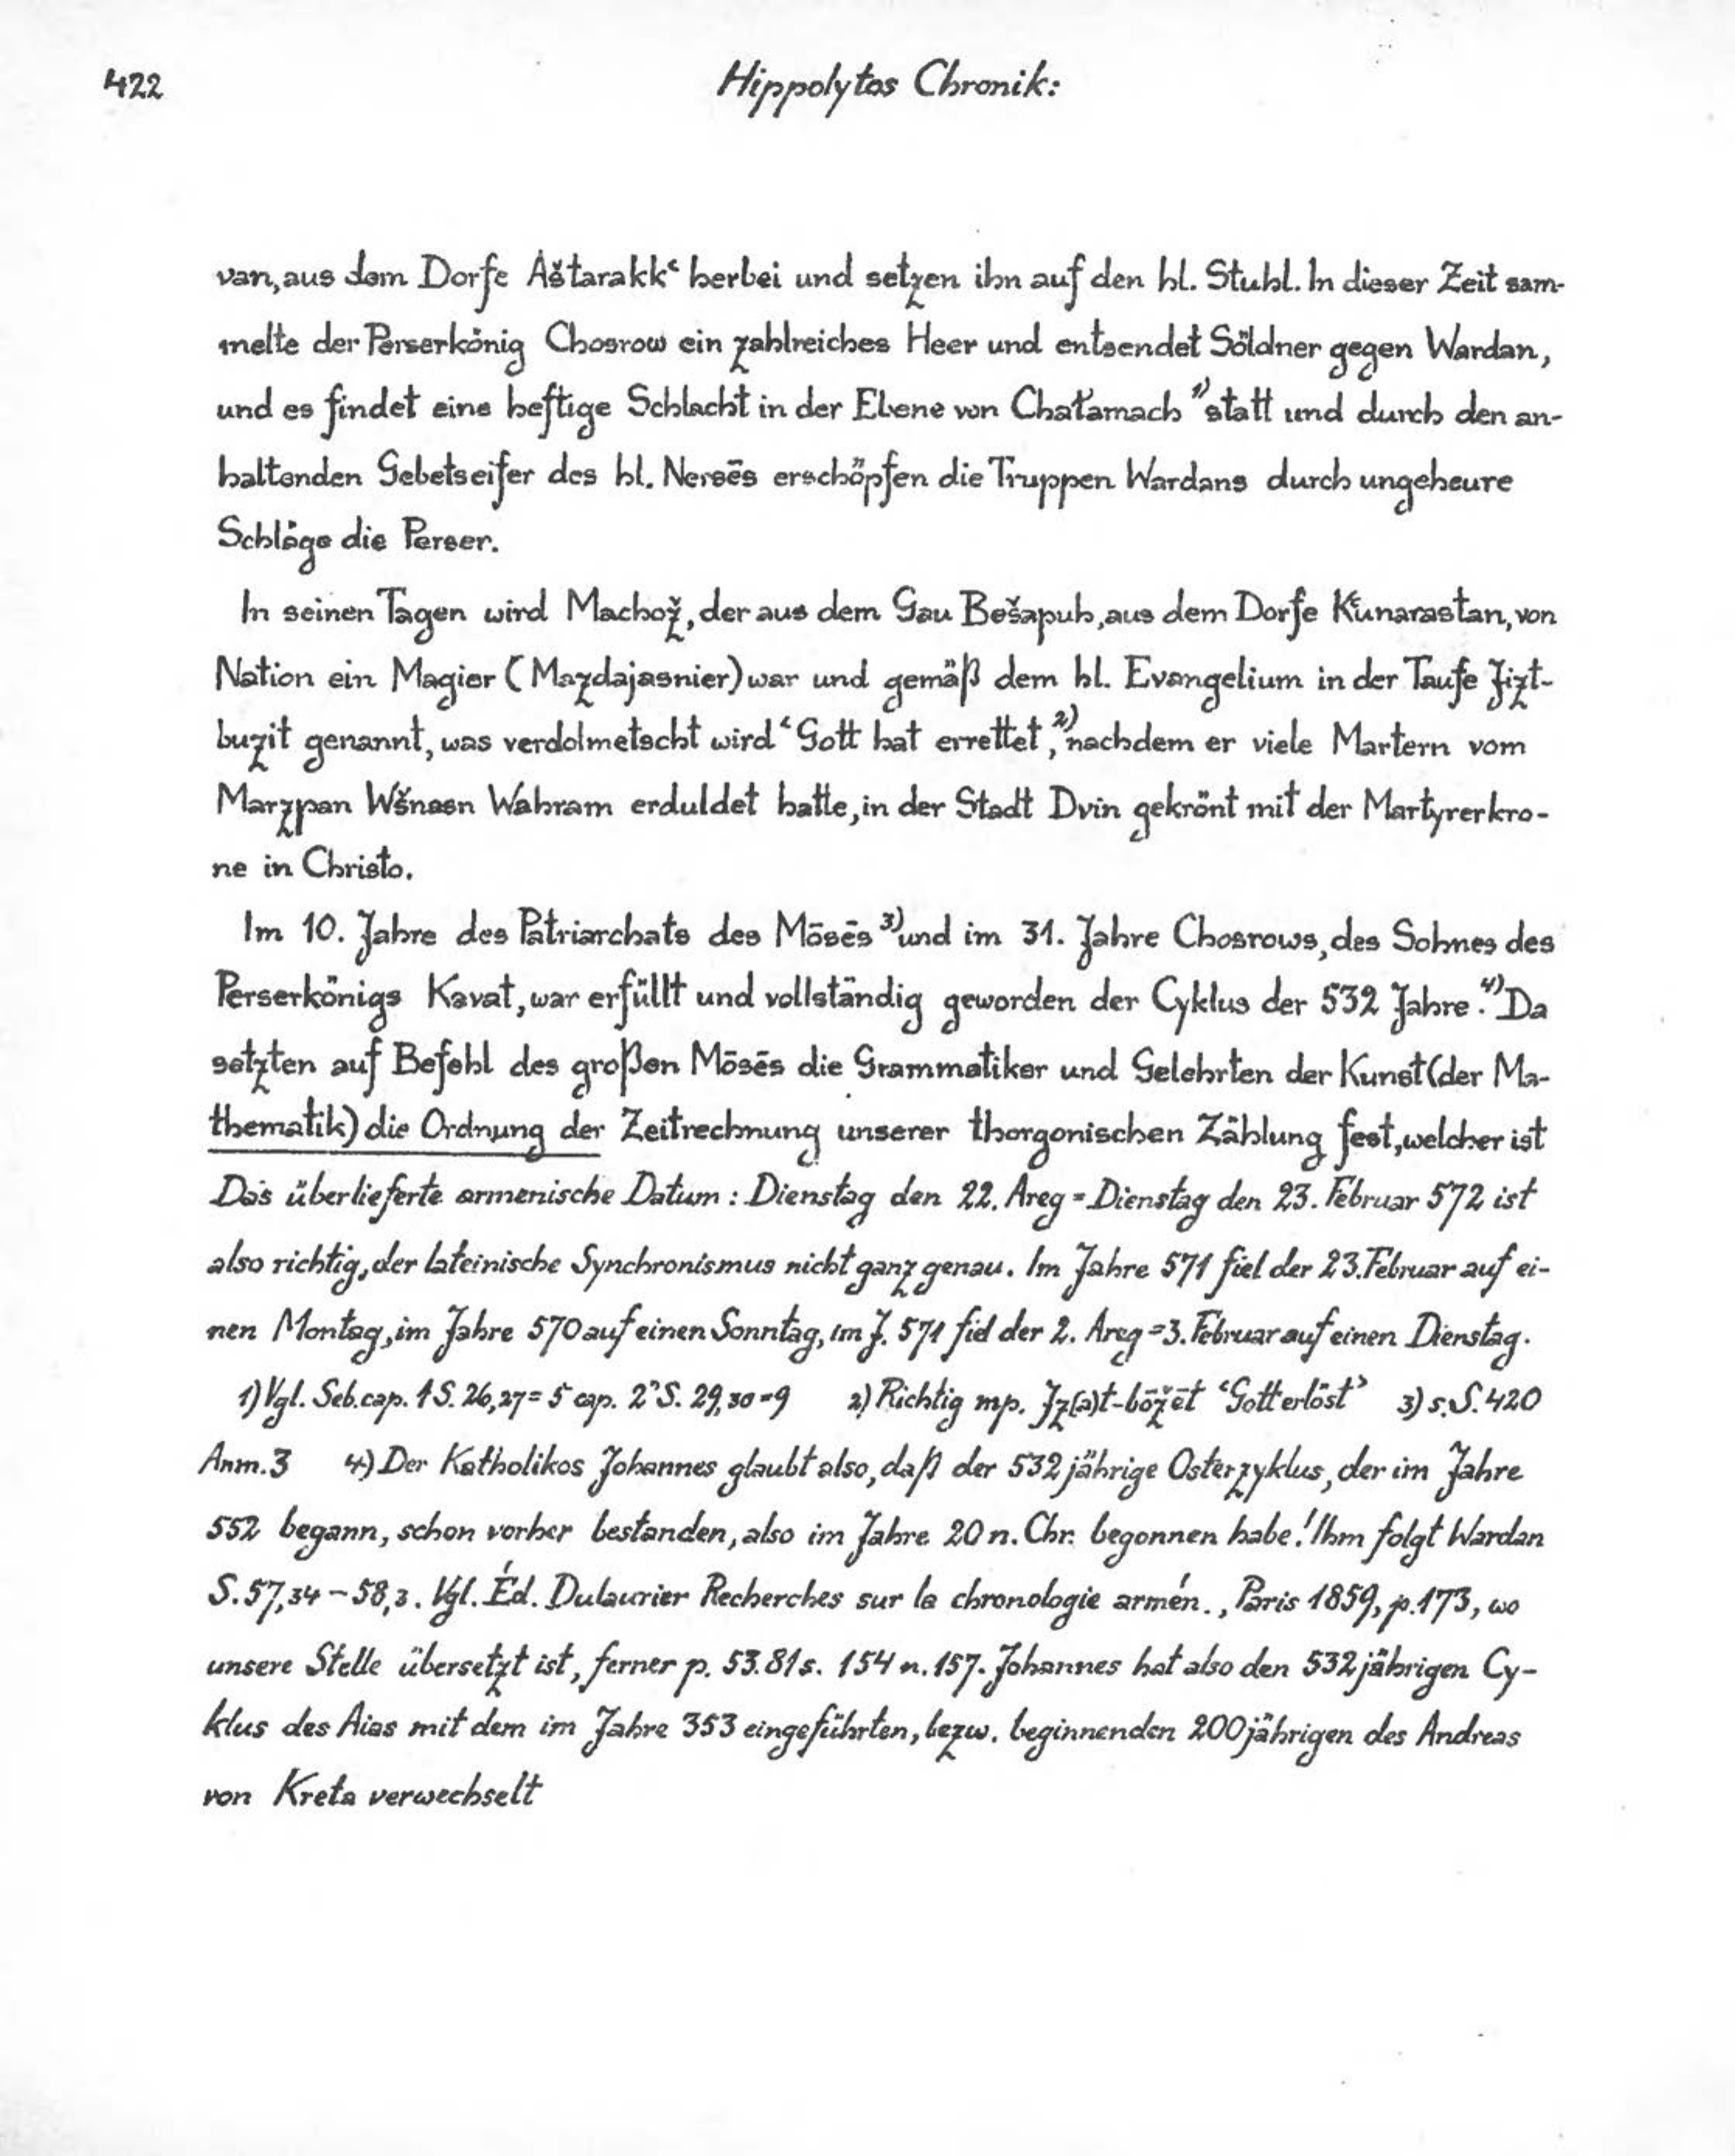 422
Hippolytos Chronik:
van, aus dem Dorfe Aštarakkʿ herbei und setzen ihn auf den hl. Stuhl. In dieser Zeit sam-
melte der Perserkönig Chosrow ein zahlreiches Heer und entsendet Söldner gegen Wardan,
und es findet eine heftige Schlacht in der Ebene von Chaɫamach ¹⁾ statt und durch den an-
haltenden Gebetseifer des hl. Nersēs erschöpfen die Truppen Wardans durch ungeheure
Schläge die Perser.
In seinen Tagen wird Machož, der aus dem Gau Bešapuh, aus dem Dorfe Kʿunarastan, von
Nation ein Magier (Mazdajasnier) war und gemäß dem hl. Evangelium in der Taufe Jizt-
buzit genannt, was verdolmetscht wird ‘Gott hat errettet’, ²⁾ nachdem er viele Martern vom
Marzpan Wšnasn Wahram erduldet hatte, in der Stadt Dvin gekrönt mit der Martyrerkro-
ne in Christo.
Im 10. Jahre des Patriarchats des Mōsēs ³⁾ und im 31. Jahre Chosrows, des Sohnes des
Perserkönigs Kavat, war erfüllt und vollständig geworden der Cyklus der 532 Jahre. ⁴⁾ Da
setzten auf Befehl des großen Mōsēs die Grammatiker und Gelehrten der Kunst (der Ma-
thematik) die Ordnung der Zeitrechnung unserer thorgonischen Zählung fest, welcher ist
Das überlieferte armenische Datum: Dienstag den 22. Areg = Dienstag den 23. Februar 572 ist
also richtig, der lateinische Synchronismus nicht ganz genau. Im Jahre 571 fiel der 23. Februar auf ei-
nen Montag, im Jahre 570 auf einen Sonntag, im J. 571 fiel der 2. Areg = 3. Februar auf einen Dienstag.
1) Vgl. Seb. cap. 1 S. 26,27 = 5 cap. 2" S. 29,30 = 9 2) Richtig mp. Jz(a)t-bōžēt ‘Gott erlöst’ 3) s. S. 420
Anm. 3 4) Der Katholikos Johannes glaubt also, daß der 532 jährige Osterzyklus, der im Jahre
552 begann, schon vorher bestanden, also im Jahre 20 n. Chr. begonnen habe! Ihm folgt Wardan
S. 57,34 – 58,3. Vgl. Éd. Dulaurier Recherches sur la chronologie armén., Paris 1859, p. 173, wo
unsere Stelle übersetzt ist, ferner p. 53. 81 s. 154 n. 157. Johannes hat also den 532 jährigen Cy-
klus des Aias mit dem im Jahre 353 eingeführten, bezw. beginnenden 200 jährigen des Andreas
von Kreta verwechselt